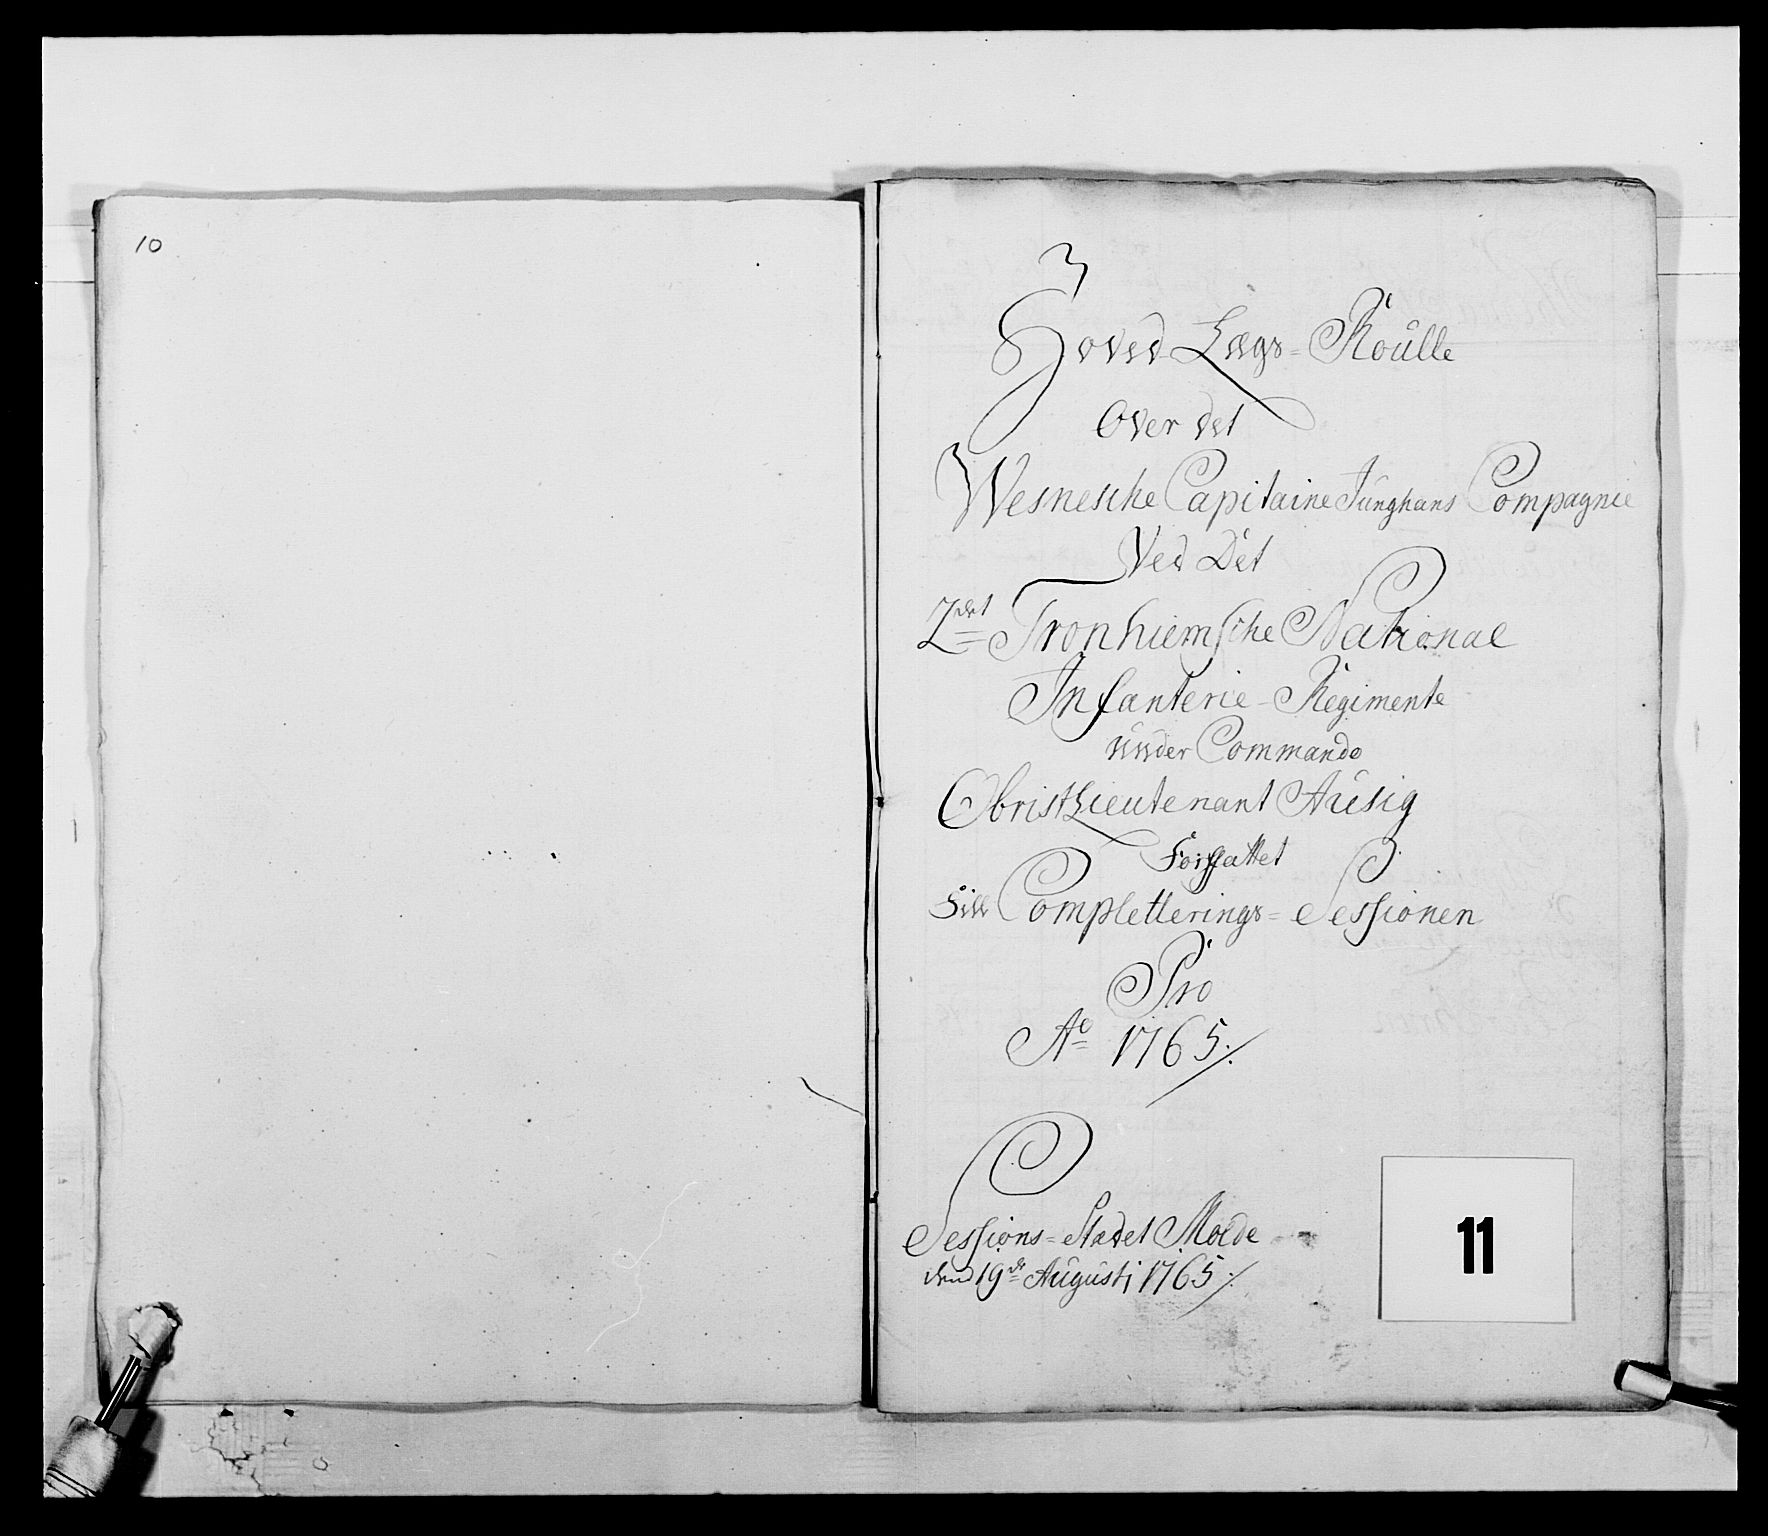 10
Hoved Lægs-Roulle
Over det
Wesnesche Capitaine Junghans Compagnie
Ved Det
2det Tronhiemsche National
Infanterie-Regimente
under Commando
ObristLieutenant Ausig
Forfattet
Till Completterings-Sessionen
Pro
Ao 1765
Sessions-Stædet Molde
den 19de Augusti 1765
11